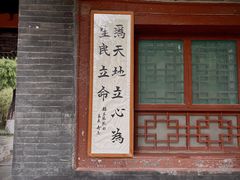 為天地立心為
生民立命